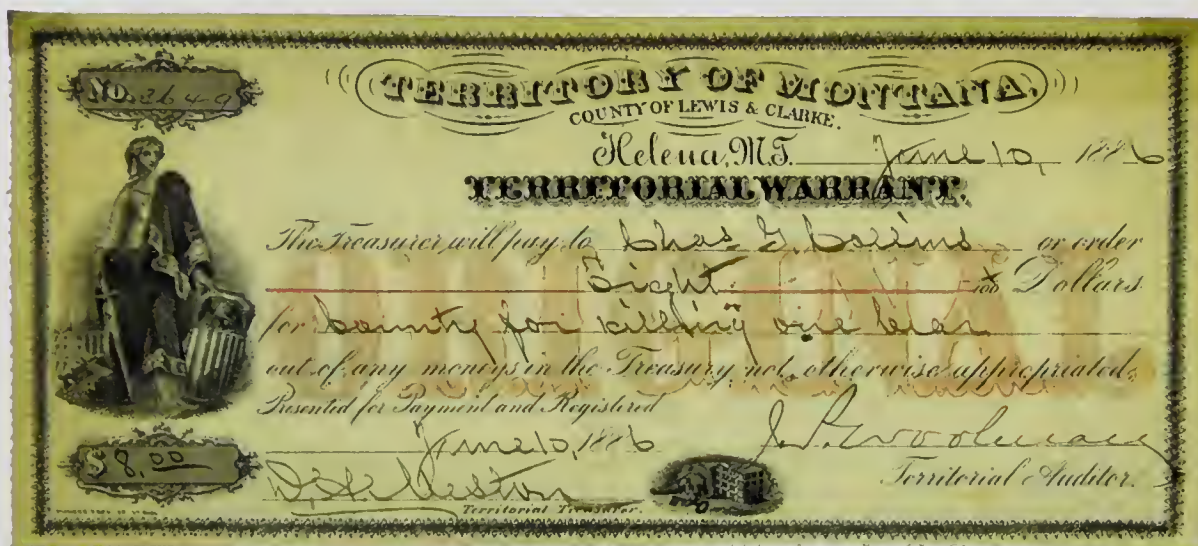 NO. 3649
TERRITORY OF MONTANA,
COUNTY OF LEWIS & CLARKE.
Helena, M.T. June 10, 1886
TERRITORIAL WARRANT.
The Treasurer will pay to Chas G. Collins or order
Eight Dollars
for bounty for killing one bear
out of any moneys in the Treasury not otherwise appropriated.
Presented for Payment and Registered
June 10, 1886
$ 8.00
Territorial Treasurer.
J. P. Woolman
Territorial Auditor.